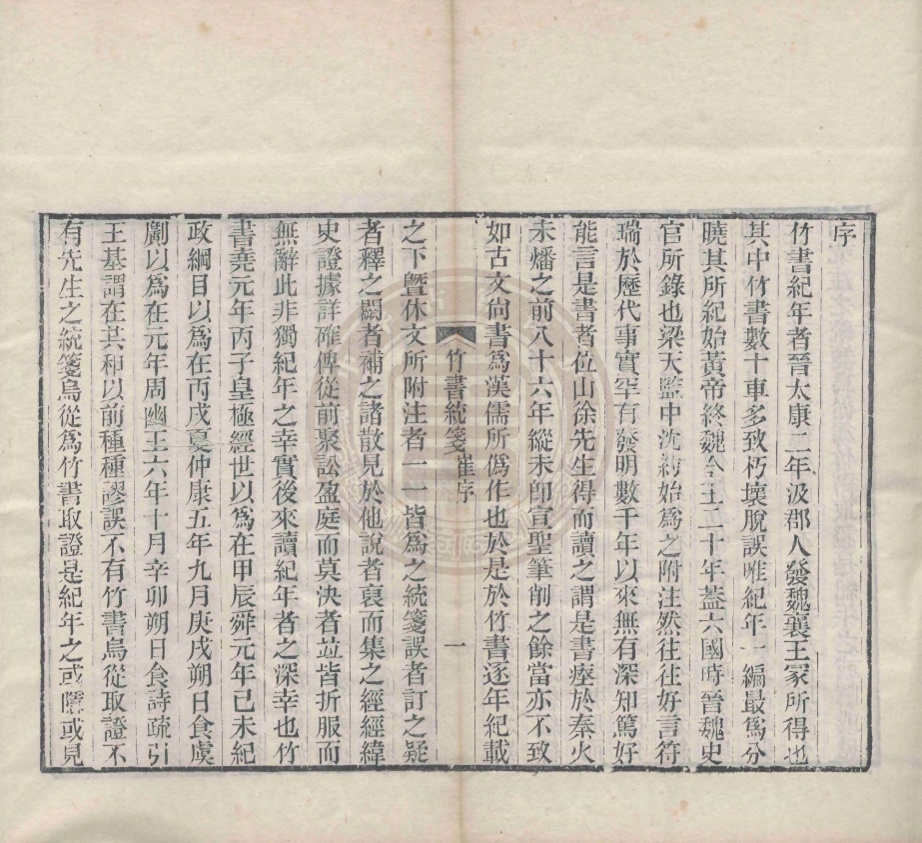 序
竹書紀年者晉太康二年汲郡人發魏襄王冢所得也
其中竹書數十車多致朽壞脫誤唯紀年一編最爲分
曉其所紀始黃帝終魏今王二十年蓋六國時晉魏史
官所錄也梁天監中沈約始爲之附注然往往好言符
瑞於歷代事實罕有發明數千年以來無有深知篤好
能言是書者位山徐先生得而讀之謂是書瘞於秦火
未燔之前八十六年縱未卽宣聖筆削之餘當亦不致
如古文尙書爲漢儒所僞作也於是於竹書逐年紀載
竹書統箋崔序 一
之下曁休文所附注者一一皆爲之統箋誤者訂之疑
者釋之闕者補之諸散見於他說者裒而集之經經緯
史證據詳確俾從前聚訟盈庭而莫決者竝皆折服而
無辭此非獨紀年之幸實後來讀紀年者之深幸也竹
書堯元年丙子皇極經世以爲在甲辰舜元年己未紀
政綱目以爲在丙戌夏仲康五年九月庚戌朔日食虞
劆以爲在元年周幽王六年十月辛卯朔日食詩疏引
王基謂在共和以前種種謬誤不有竹書烏從取證不
有先生之統箋烏從爲竹書取證是紀年之或隱或見